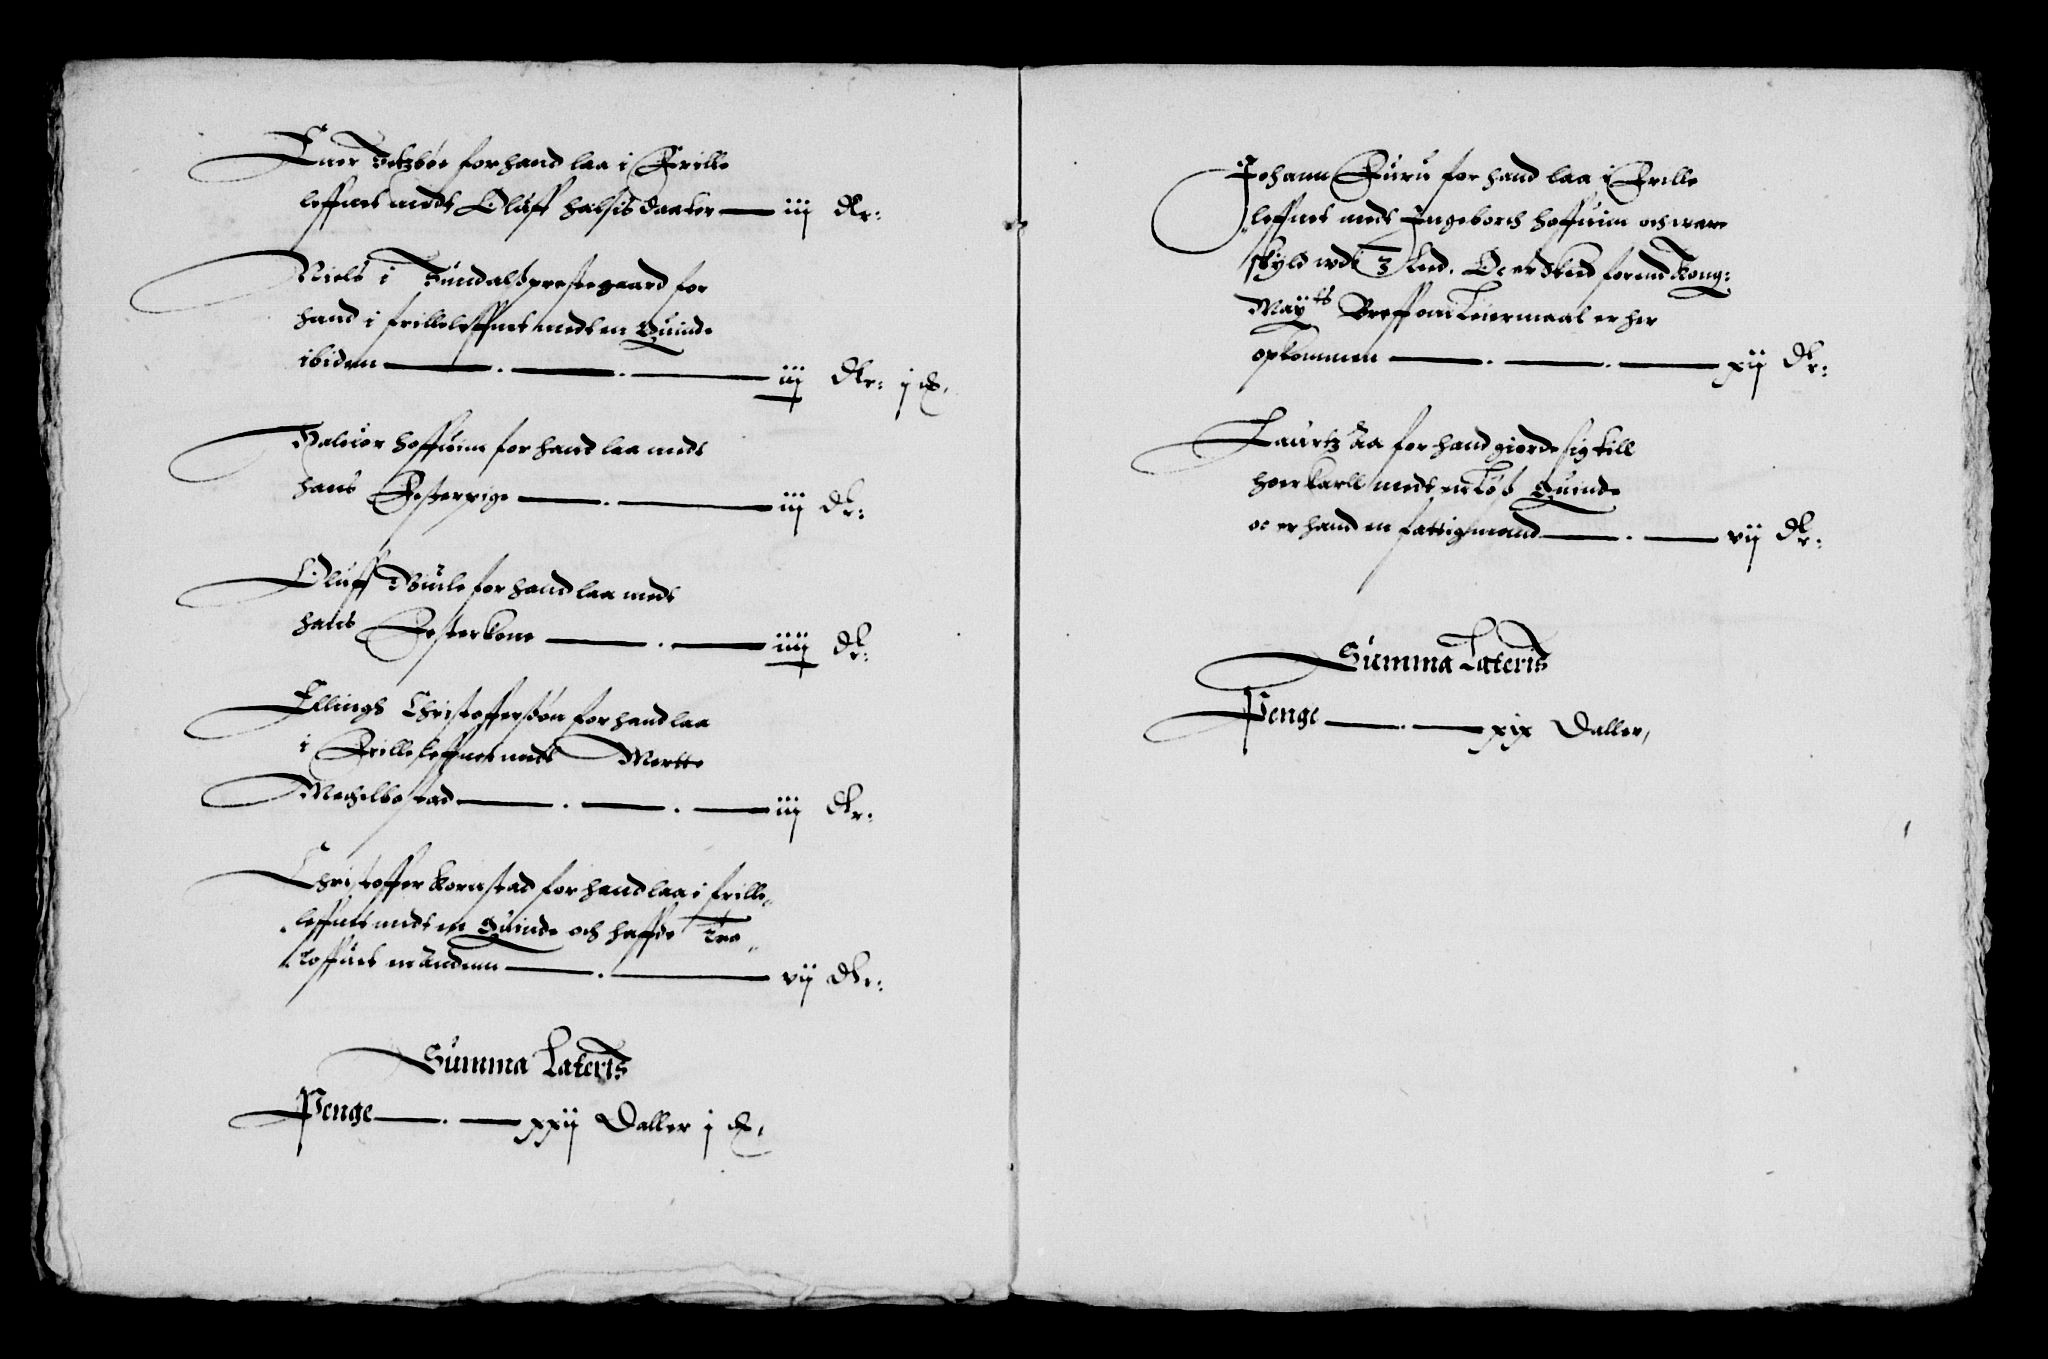 Iuer Setzbøe for hand laa i Frille
leffnet medt Oluff Halsis daater — iij dlr:
Niels i Sundals prestegaard for
hand i frilleleffnet medt en Quinde
ibidem — . — . — iij dlr: j
Haluor Hoffuim for hand laa medt
hans Festerpige — . — iij dlr:
Oluff for hand laa medt
hans Festerkone — . — iiij dlr:
Ellingh Christofferssøn for hand laa
i Frilleleffnet medt Mertte
Megelbostad — . — . — iij dlr:
Christoffer Kornstad for hand laa i frille„
leffnet medt en Quinde och haffde Tro„
loffuet en Anden — . — vij dlr:
Summa Lateris
Penge — . — xxij Daller j
Johann Furu for hand laa i Frille
leffnet medt Ingeborch Hoffuim och ware
skyld vdi 3 Led. Oc er skeed førend Kong:
Maytts Breff om Leiermaal er her
opkommen — . — . — xij dlr:
Lauritz Aa for hand giorde sig till
hoerkarll medt en Løs Quinde
oc er hand en fattig mand — . — vij dlr:
Summa Lateris
Penge — . — xix Daller,